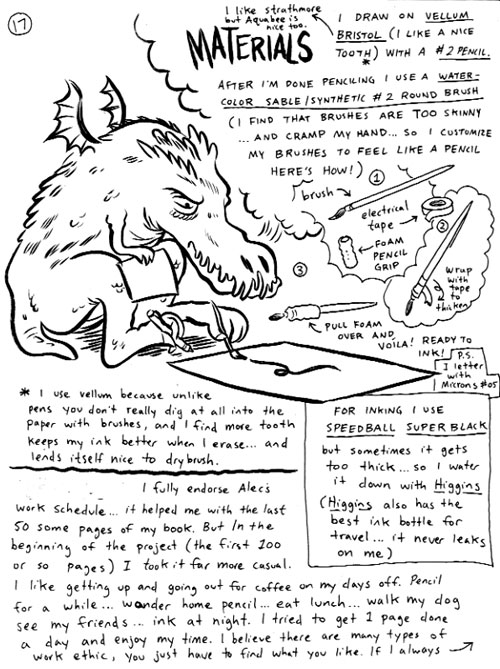 17
I like strathmore
but Aquabee is
nice too.
MATERIALS
I DRAW ON VELLUM
BRISTOL (I LIKE A NICE
TOOTH) WITH A #2 PENCIL.
*
AFTER I'M DONE PENCILING I USE A WATER-
COLOR SABLE/SYNTHETIC #2 ROUND BRUSH
(I FIND THAT BRUSHES ARE TOO SKINNY
...AND CRAMP MY HAND... SO I CUSTOMIZE
MY BRUSHES TO FEEL LIKE A PENCIL
HERE'S HOW!)
1
brush
electrical
tape
FOAM
PENCIL
GRIP
2
wrap
with
tape
to
thicken
3
PULL FOAM
OVER AND
VOILA! READY TO
INK!
P.S.
I letter
with
Microns #05
* I use vellum because unlike
pens you don't really dig at all into the
paper with brushes, and I find more tooth
keeps my ink better when I erase... and
lends itself nice to drybrush.
FOR INKING I USE
SPEEDBALL SUPER BLACK
but sometimes it gets
too thick... so I water
it down with Higgins
(Higgins also has the
best ink bottle for
travel... it never leaks
on me.)
I fully endorse Alec's
work schedule... it helped me with the last
50 some pages of my book. But In the
beginning of the project (the first 100
or so pages) I took it far more casual.
I like getting up and going out for coffee on my days off. Pencil
for a while... wander home pencil... eat lunch... walk my dog
see my friends... ink at night. I tried to get 1 page done
a day and enjoy my time. I believe there are many types of
work ethic, you just have to find what you like. If I always